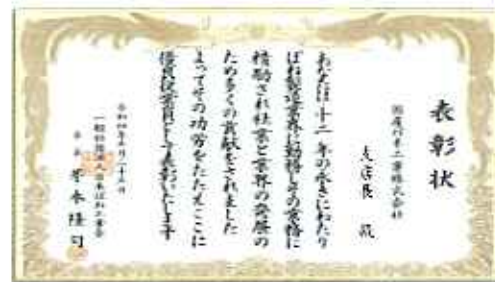 表彰状
国産バネ工業株式会社
支店長 殿
あなたは十二年の永きにわたり
ばね製造業界に勤務しその業務に
精励され社業と業界の発展の
ため多くの貢献をされました
よってその功労をたたえここに
優良従業員として表彰いたします
令和四年五月二十六日
一般社団法人日本ばね工業会
会長